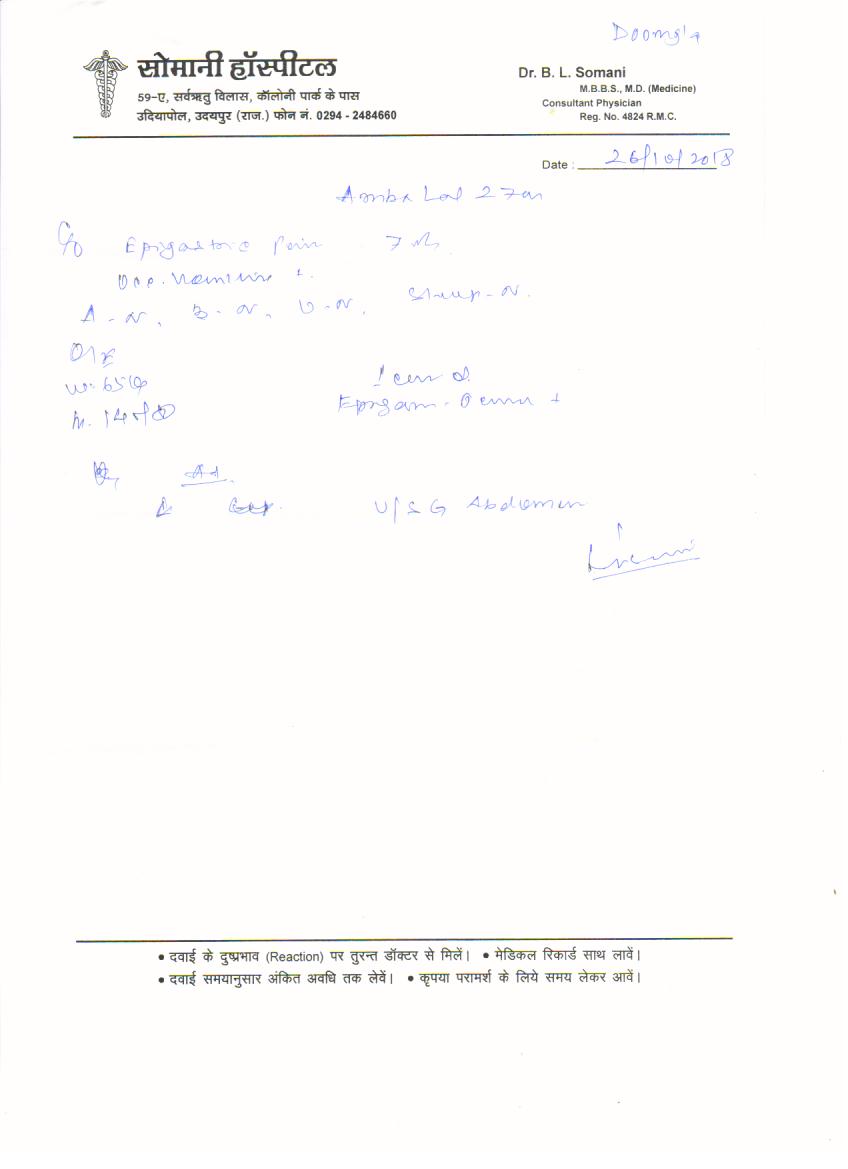 Doongla
सोमानी हॉस्पीटल
59-ए, सर्वऋतु विलास, कॉलोनी पार्क के पास
उदियापोल, उदयपुर (राज.) फोन नं. 0294 - 2484660
Dr. B. L. Somani
M.B.B.S., M.D. (Medicine)
Consultant Physician
Reg. No. 4824 R.M.C.
Date : 26/10/2018
Amba Lal
C/O Epigastric Pain 7
A - N, B - N, U - N, Sleep - N.
O/E
Epigas
Ad.
U/S G Abdomen
• दवाई के दुष्प्रभाव (Reaction) पर तुरन्त डॉक्टर से मिलें। • मेडिकल रिकार्ड साथ लावें।
• दवाई समयानुसार अंकित अवधि तक लेवें। • कृपया परामर्श के लिये समय लेकर आवें।